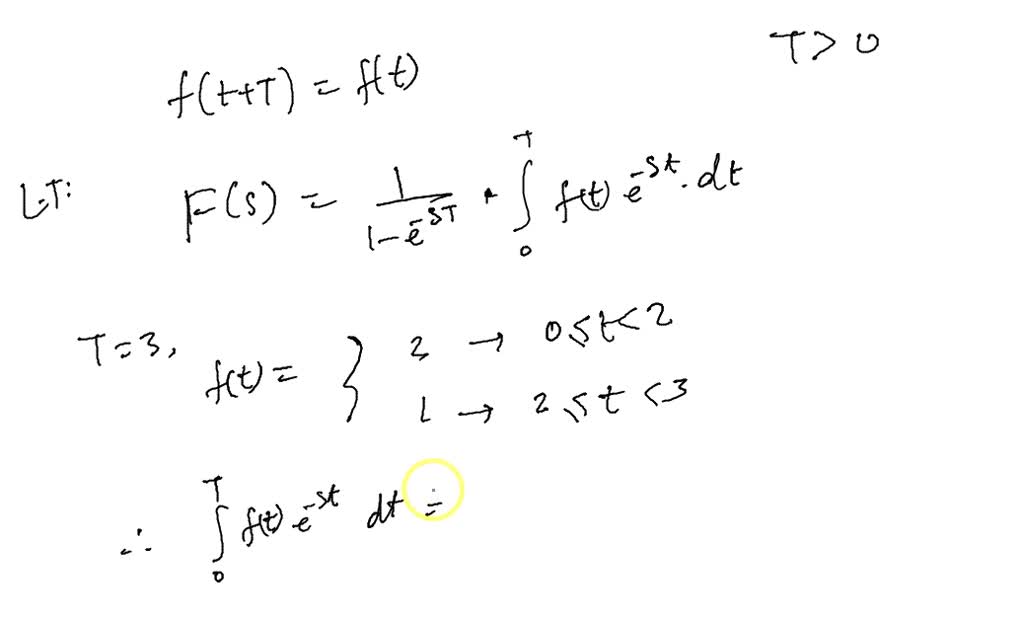 T > 0
f(t+T) = f(t)
L.T: F(s) = 1/(1-e^-ST) · ∫₀ᵀ f(t) e^-st. dt
T=3, f(t) = } 2 → 0≤t<2
1 → 2≤t<3
∴ ∫₀ᵀ f(t) e^-st dt =